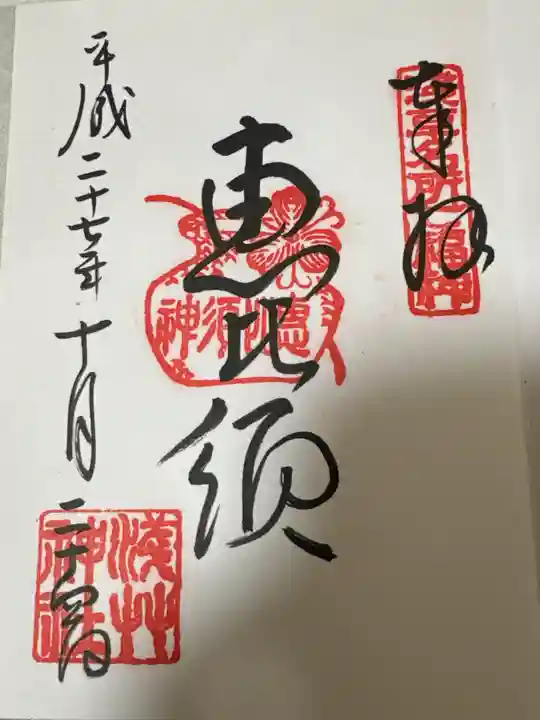 奉拝
東京名所七福神
恵比須
恵比須神
平成二十七年十月二十四日
浅草神社